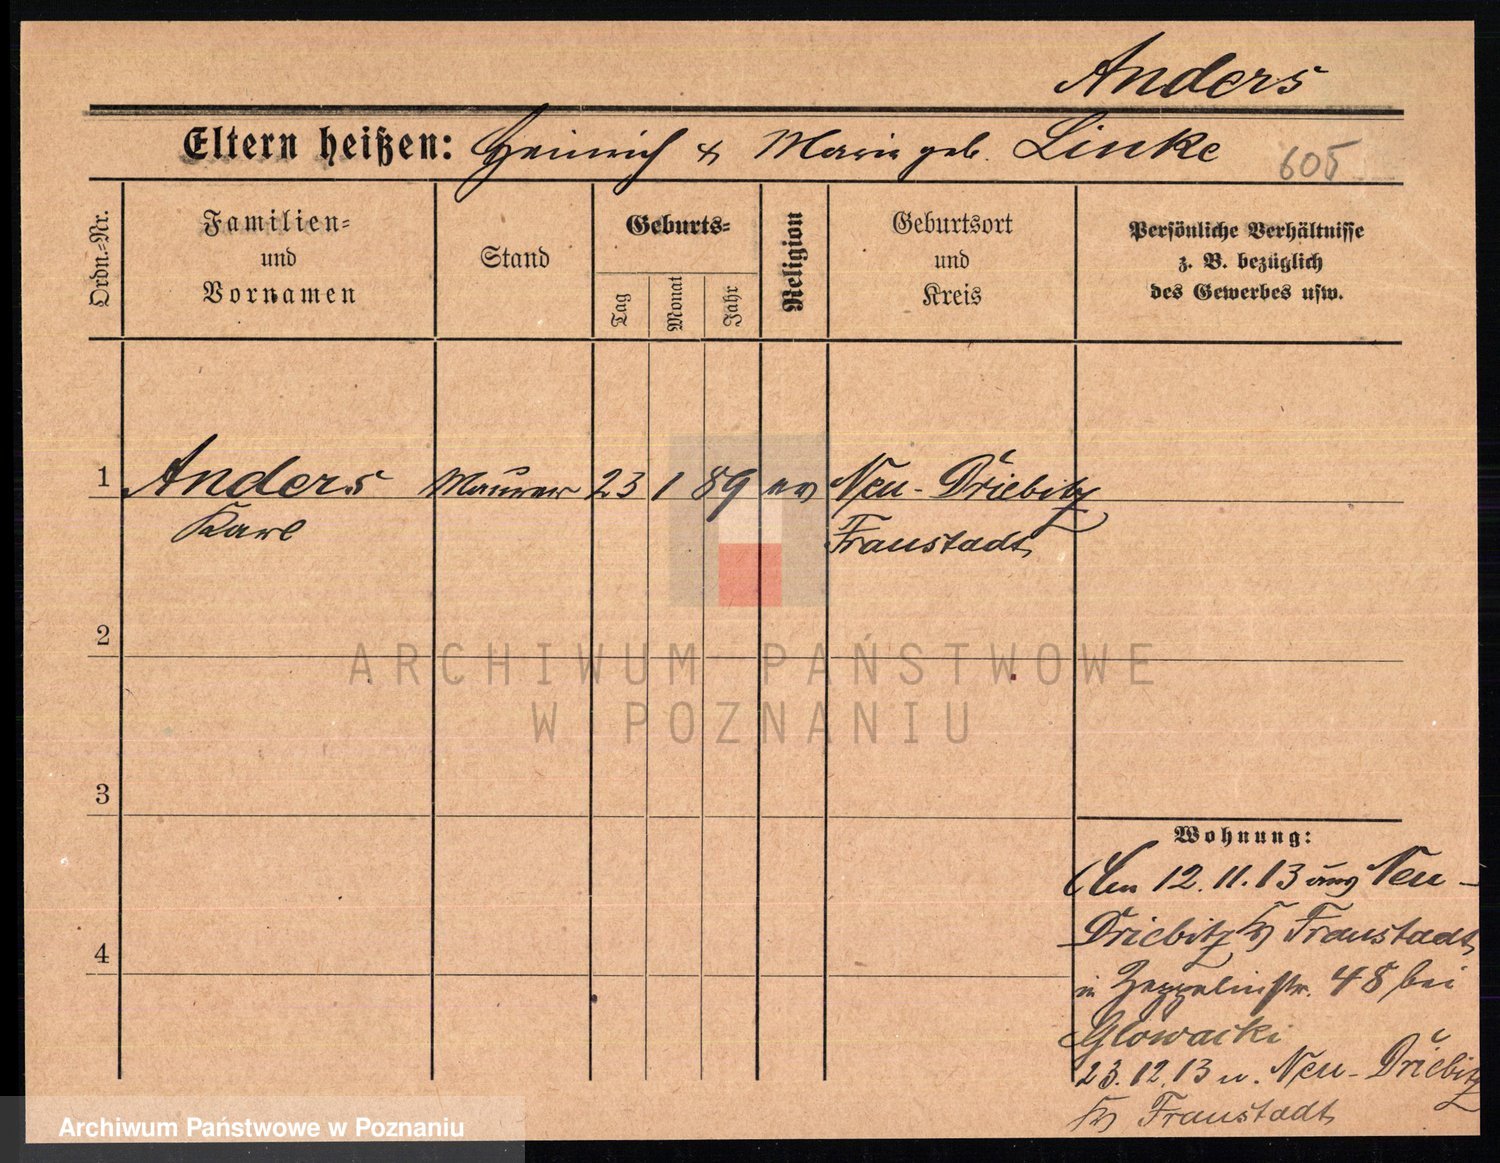 Anders
Eltern heißen: Heinrich & Marie geb. Linke 605
Ordn.-Nr.
Familien- und Vornamen
Stand
Geburts-
Tag
Monat
Jahr
Religion
Geburtsort und Kreis
Persönliche Verhältnisse
z. B. bezüglich
des Gewerbes usw.
1 Anders Maurer 23 1 89 ev Neu-Driebitz
Karl Fraustadt
2
3
4
ARCHIWUM PAŃSTWOWE
W POZNANIU
Wohnung:
Am 12.11.13 aus Neu-
Driebitz Kr Fraustadt
in Zeppelinstr. 48 bei
Glowacki
23.12.13 n. Neu-Driebitz
Kr Fraustadt
Archiwum Państwowe w Poznaniu